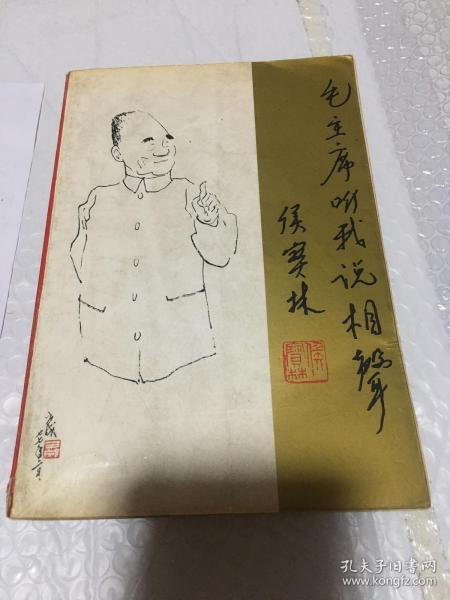 毛主席听我说相声
侯宝林
侯
寳林
孔夫子旧书网
www.kongfz.com